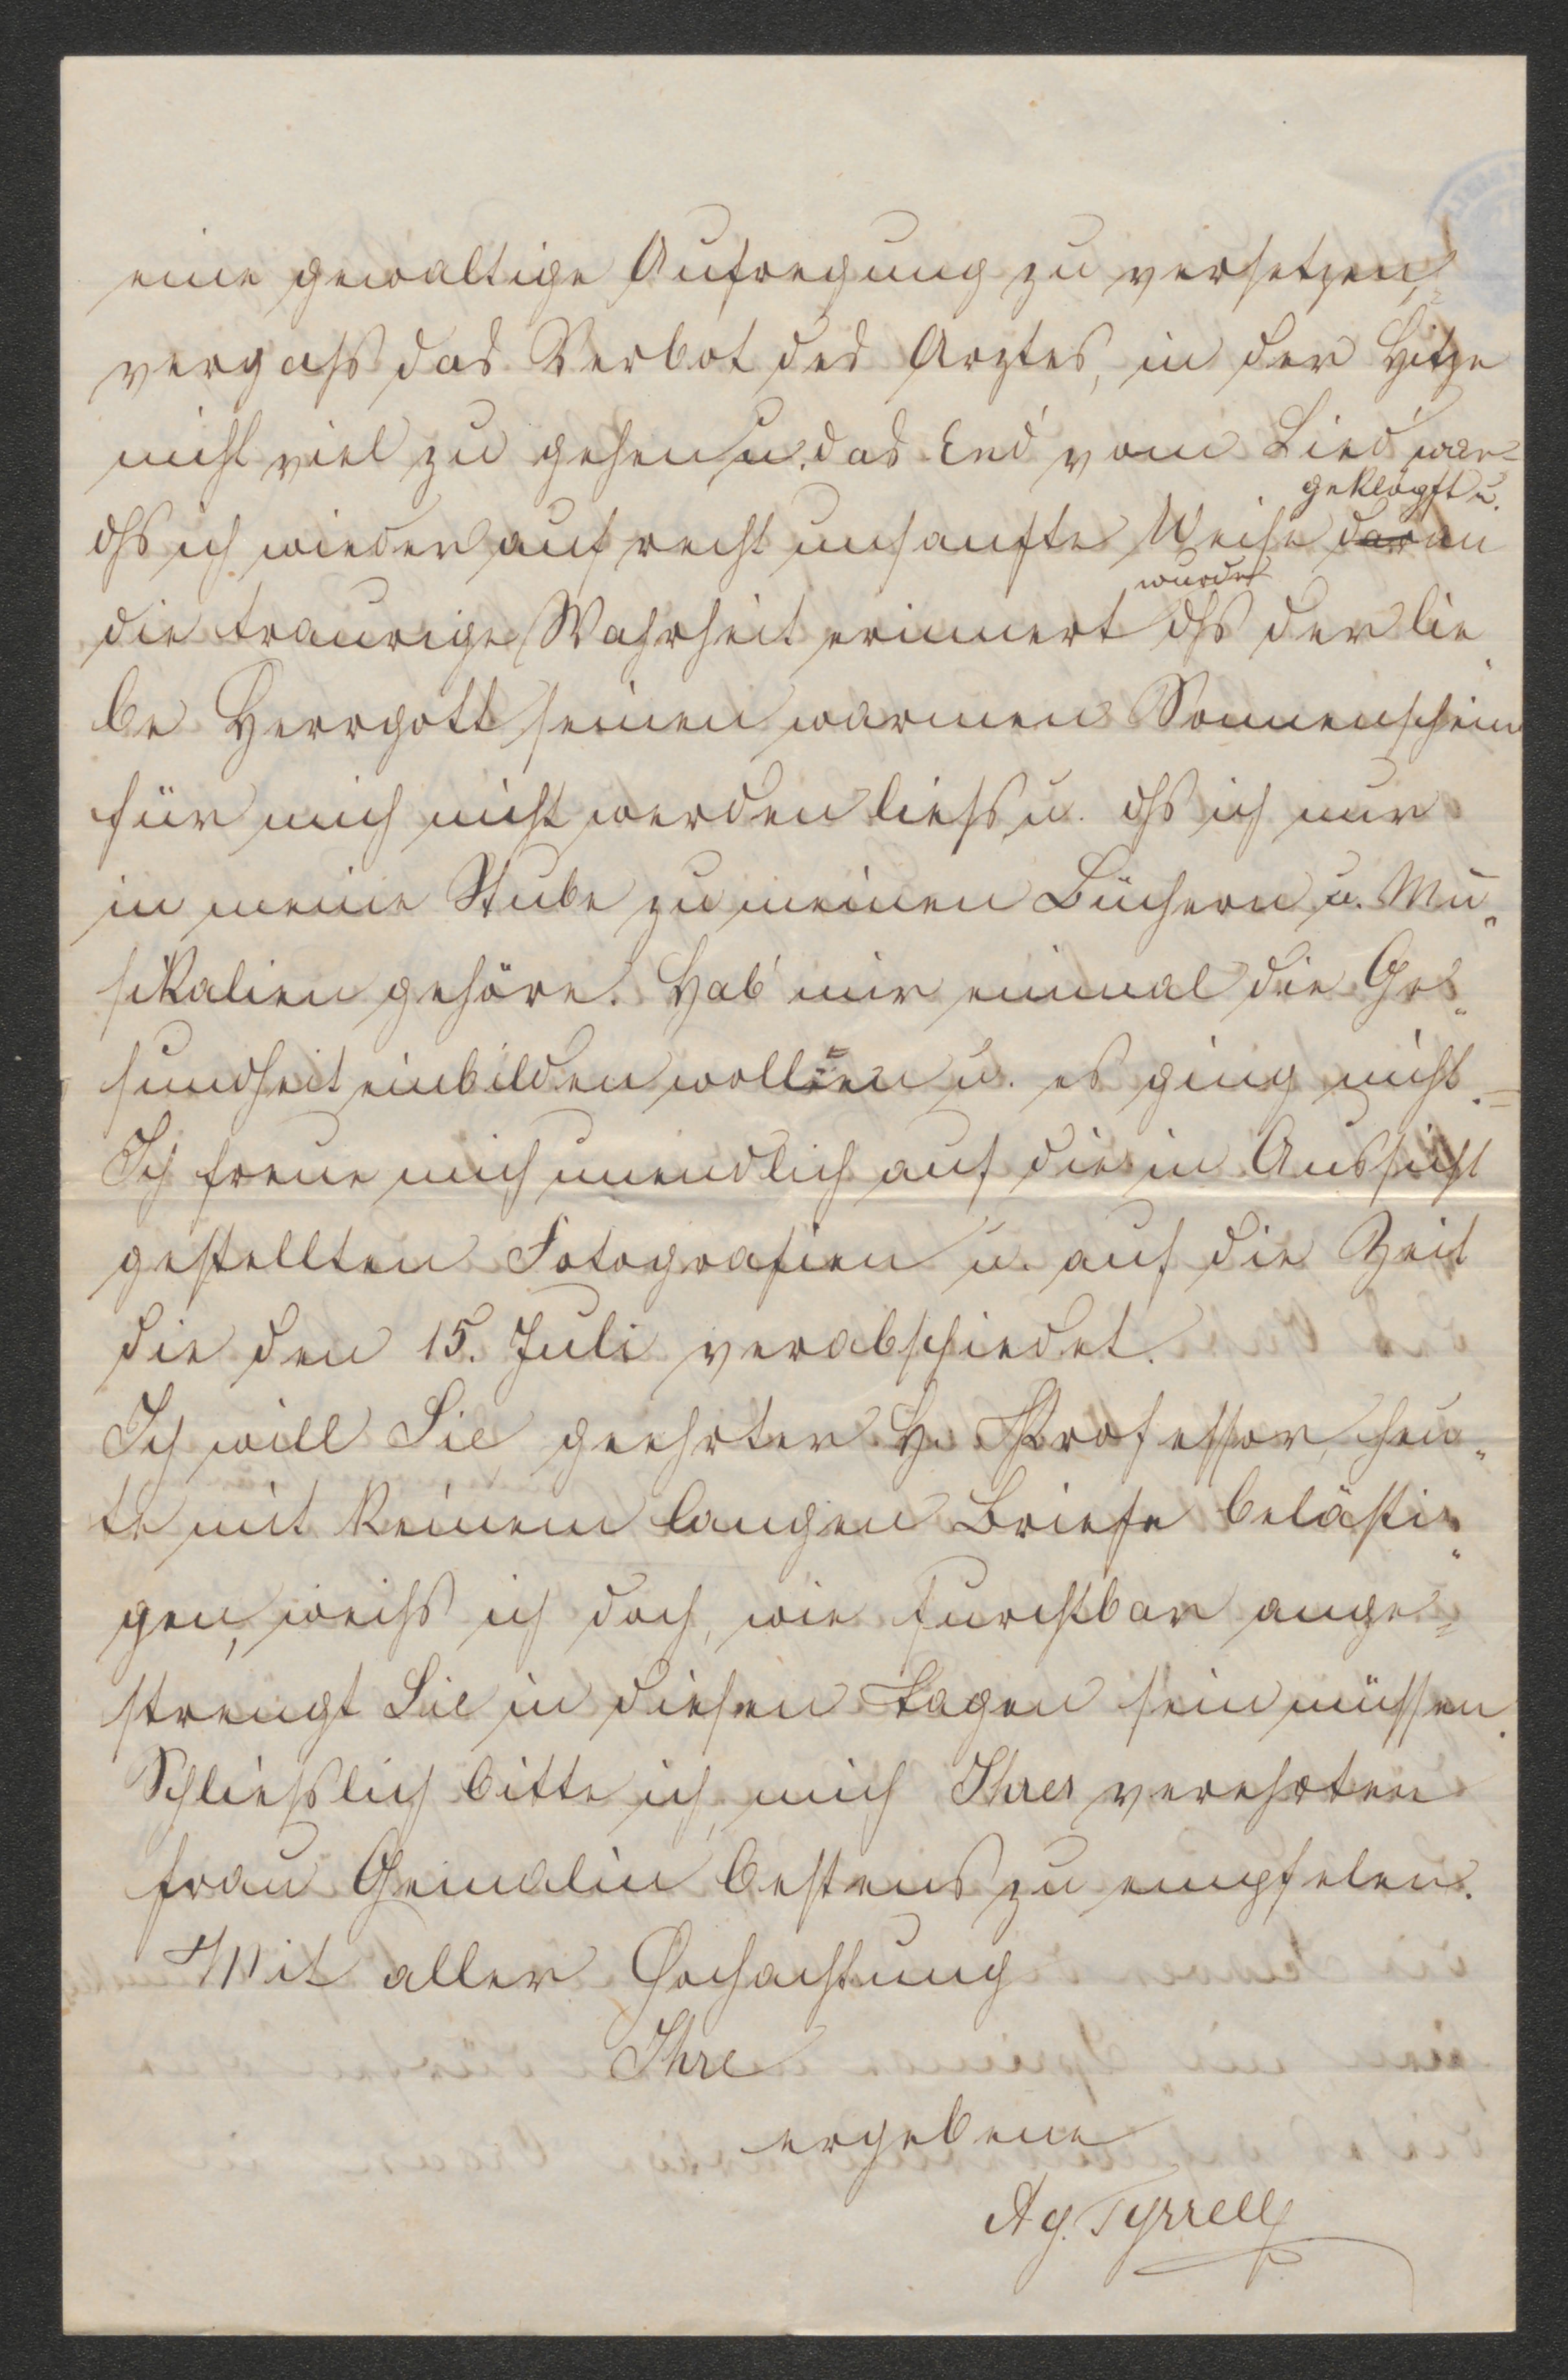 eine gewaltige Aufregung zu versetzen,
vergaß das Verbot des Arztes, in der Hitze
nicht viel zu gehen u. das End' vom Lied' war
geklopft u.
dß ich wieder auf recht unsanfte Weise daran
wurde
die traurige Wahrheit erinnert dß der lie
be Herrgott seinen warmen Sonnenschein
für mich nicht werden ließ u. dß ich nur
in meine Stube zu meinen Büchern u. Mu„
sikalien gehöre. Hab' mir einmal die Ge„
sundheit einbilden wollen u. es ging nicht.=
Ich freue mich unendlich auf die in Aussicht
gestellten Fotografien u. auf die Zeit
die den 15. Juli verabschiedet.
Ich will Sie geehrter H. Professor, heu„
te mit keinem langen Briefe belästi„
gen, weiß ich doch, wie furchtbar ange=
strengt Sie in diesen Tagen sein müssen.
Schließlich bitte ich, mich Ihrer verehrten
Frau Gemalin bestens zu empfelen.
Mit aller Hochachtung
Ihre
ergebene
Ag. Tyrrell